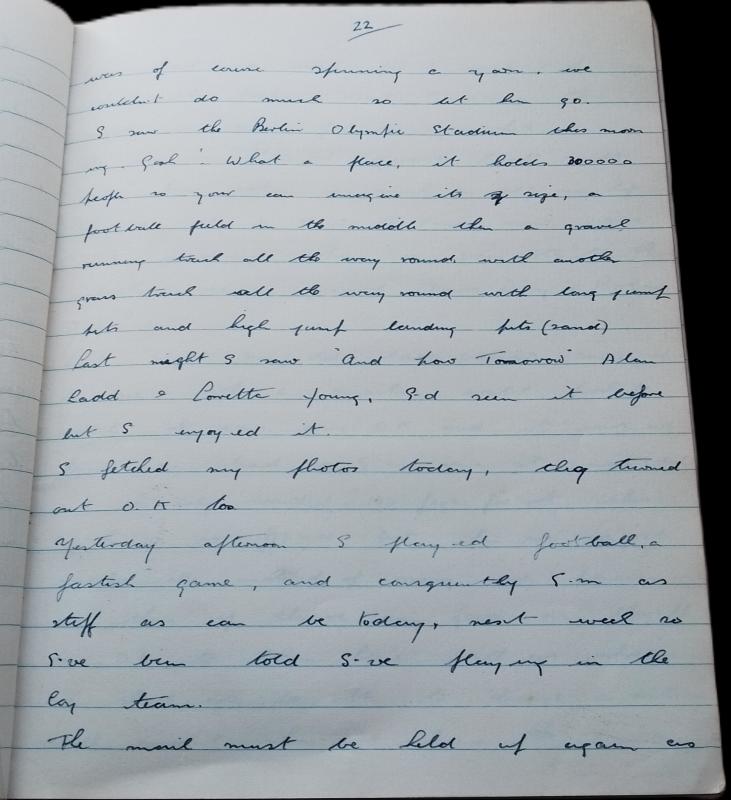 22
was of course spinning a yarn, we
couldn't do much so let him go.
I saw the Berlin Olympic Stadium this morn
ing. Gosh! What a place, it holds 300000
people so your can imagine its size, a
football field in the middle then a gravel
running track all the way round, with another
grass track all the way round with long jump
pits and high jump landing pits (sand)
Last night I saw "And how Tomorrow" Alan
Ladd & Loretta Young, I-d seen it before
but I enjoyed it.
I fetched my photos today, they turned
out O.K. too
Yesterday afternoon I played football, a
fastish game, and consquently I-m as
stiff as can be today, next week so
I-ve been told I-ve playing in the
Coy team.
The mail must be held up again as